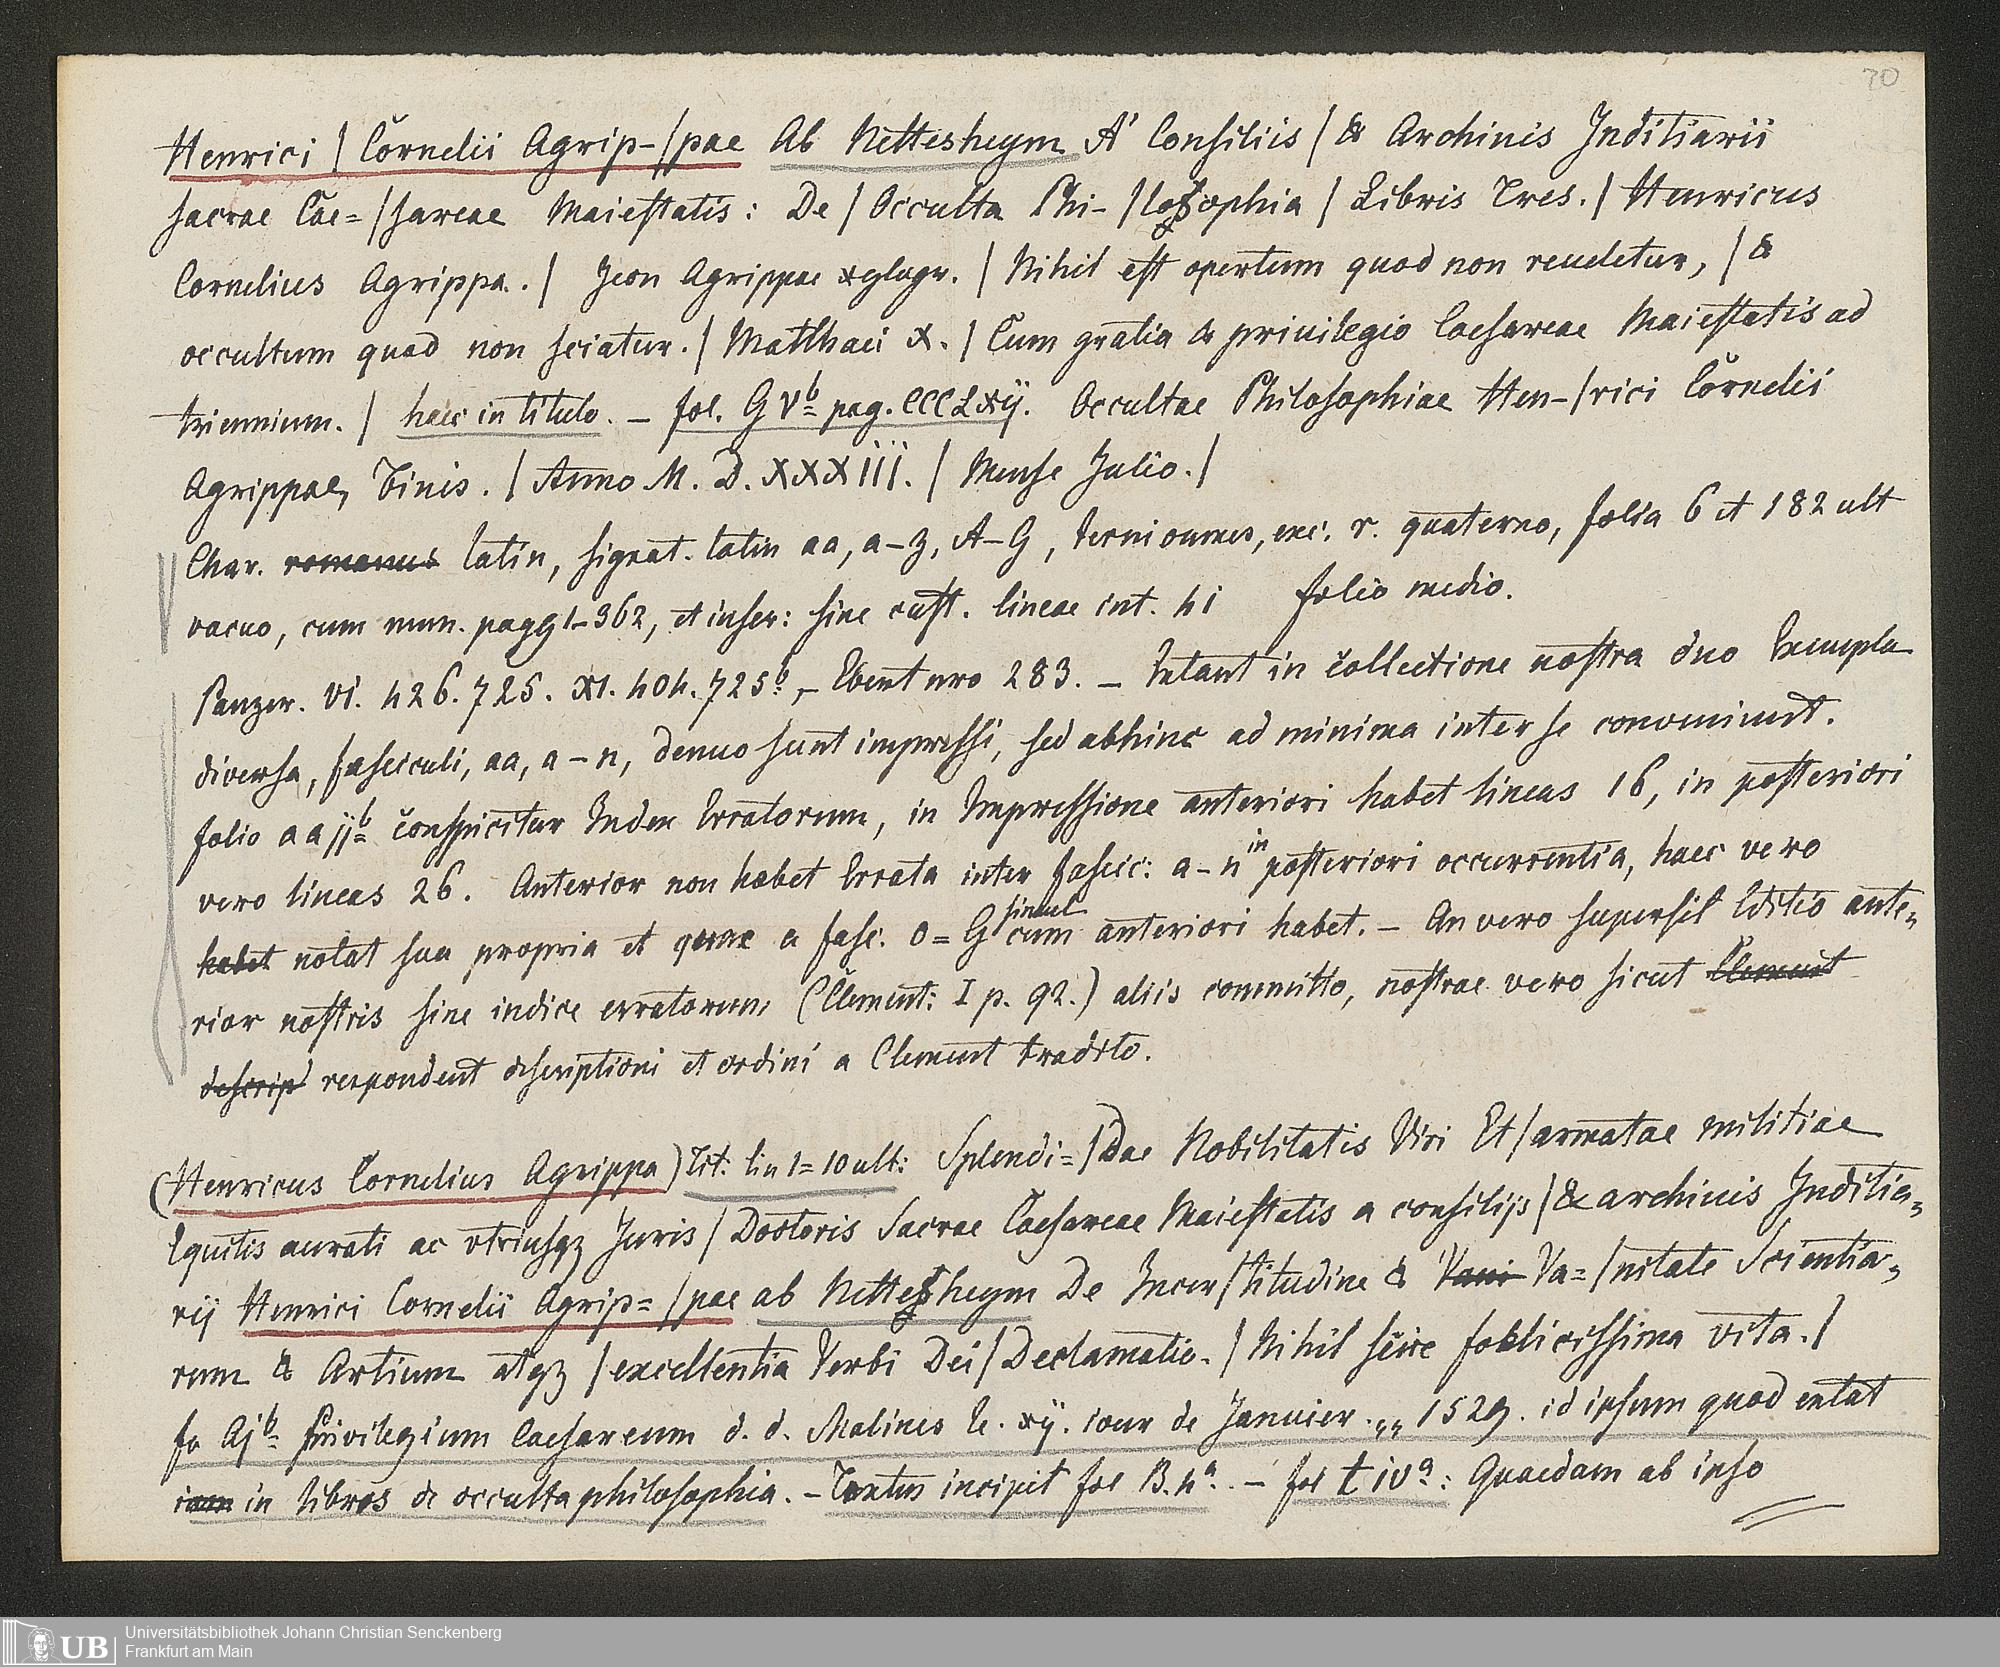 70
Henrici | Cornelii Agrip-|pae Ab Nettesheym A' Consiliis | & Archinis Inditiarii
sacrae Cae=|sareae Maiestatis: De | Occulta Phi-|losophia | Libris Tres. | Henricus
Cornelius Agrippa. | Jcon Agrippae | Nihil est opertum quod non reueletur, | &
occultum quod non sciatur. | Matthaei X. | Cum gratia & priuilegio Caesareae Maiestatis ad
triennium. | haec in titulo. – fol. G Vb pag. CCCLxij. Occultae Philosophiae Hen-|rici Cornelii
Agrippae, Finis. | Anno M. D. XXXIII. | Mense Julio. |
Char. romanus latin, signat. latin aa, a–z, A–G, terniones, exc: r. quaterno, folia 6 et 182 ult
vacuo, cum num. pagg 1–362, et inscr: sine cust. lineae int. 41 folio medio.
Panzer. VI. 426. 725. XI. 404. 725b, – Ebert nro 283. – Extant in collectione nostra duo Exempla
diversa, fasciculi, aa, a–n, denuo sunt impressi, sed abhinc ad minima inter se conveniunt.
folio aa ijb conspicitur Index Erratorum, in Impressione anteriori habet lineas 16, in posteriori
vero lineas 26. Anterior non habet Errata inter fascic: a–n in posteriori occurrentia, haec vero
habet notat sua propria et quae a fasc. o=G simul cum anteriori habet. – An vero supersit Editio ante=
rior nostris sine indice erratorum (Clement: I p. 92.) aliis committo, nostrae vero sicut Clement
descrip respondent descriptioni et ordini a Clement tradito.
(Henricus Cornelius Agrippa) Tit: lin 1=10 ult: Splendi=|Dae Nobilitatis Viri Et | armatae militiae
Equitis aurati ac vtriusqz Juris | Doctoris Sacrae Caesareae Maiestatis a consilijs | & archinis Inditia=
rij Henrici Cornelii Agrip=|pae ab Nettesheym De Incer|titudine & Vani Va=|nitate Scientia=
rum & Artium atqz | excellentia Verbi Dei | Declamatio. | Nihil scire foelicissima vita. |
fo Ajb Privilegium Caesareum d. d. Malines le. xij. iour de Januier. „ 1529. id ipsum quod extat
iam in libros de occulta philosophia. – Textus incipit fol B. 4a. – fol t iva: Quaedam ab ipso
UB
Universitätsbibliothek Johann Christian Senckenberg
Frankfurt am Main